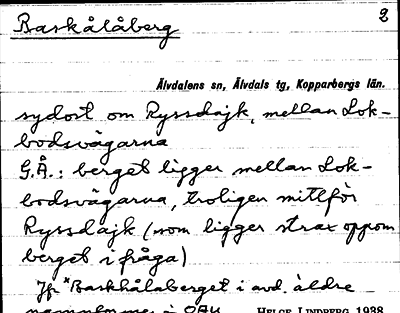 Baskålåberg
2
Älvdalens sn, Älvdals tg, Kopparbergs län.
sydost om Ryssdajk, mellan Lok-
bodsvägarna
G.Å.: berget ligger mellan Lok-
bodsvägarna, troligen mittför
Ryssdajk (som ligger strax oppom
berget i fråga)
Jfr *Baskhålaberget i avd. äldre
HJELM LINDBERG 1938